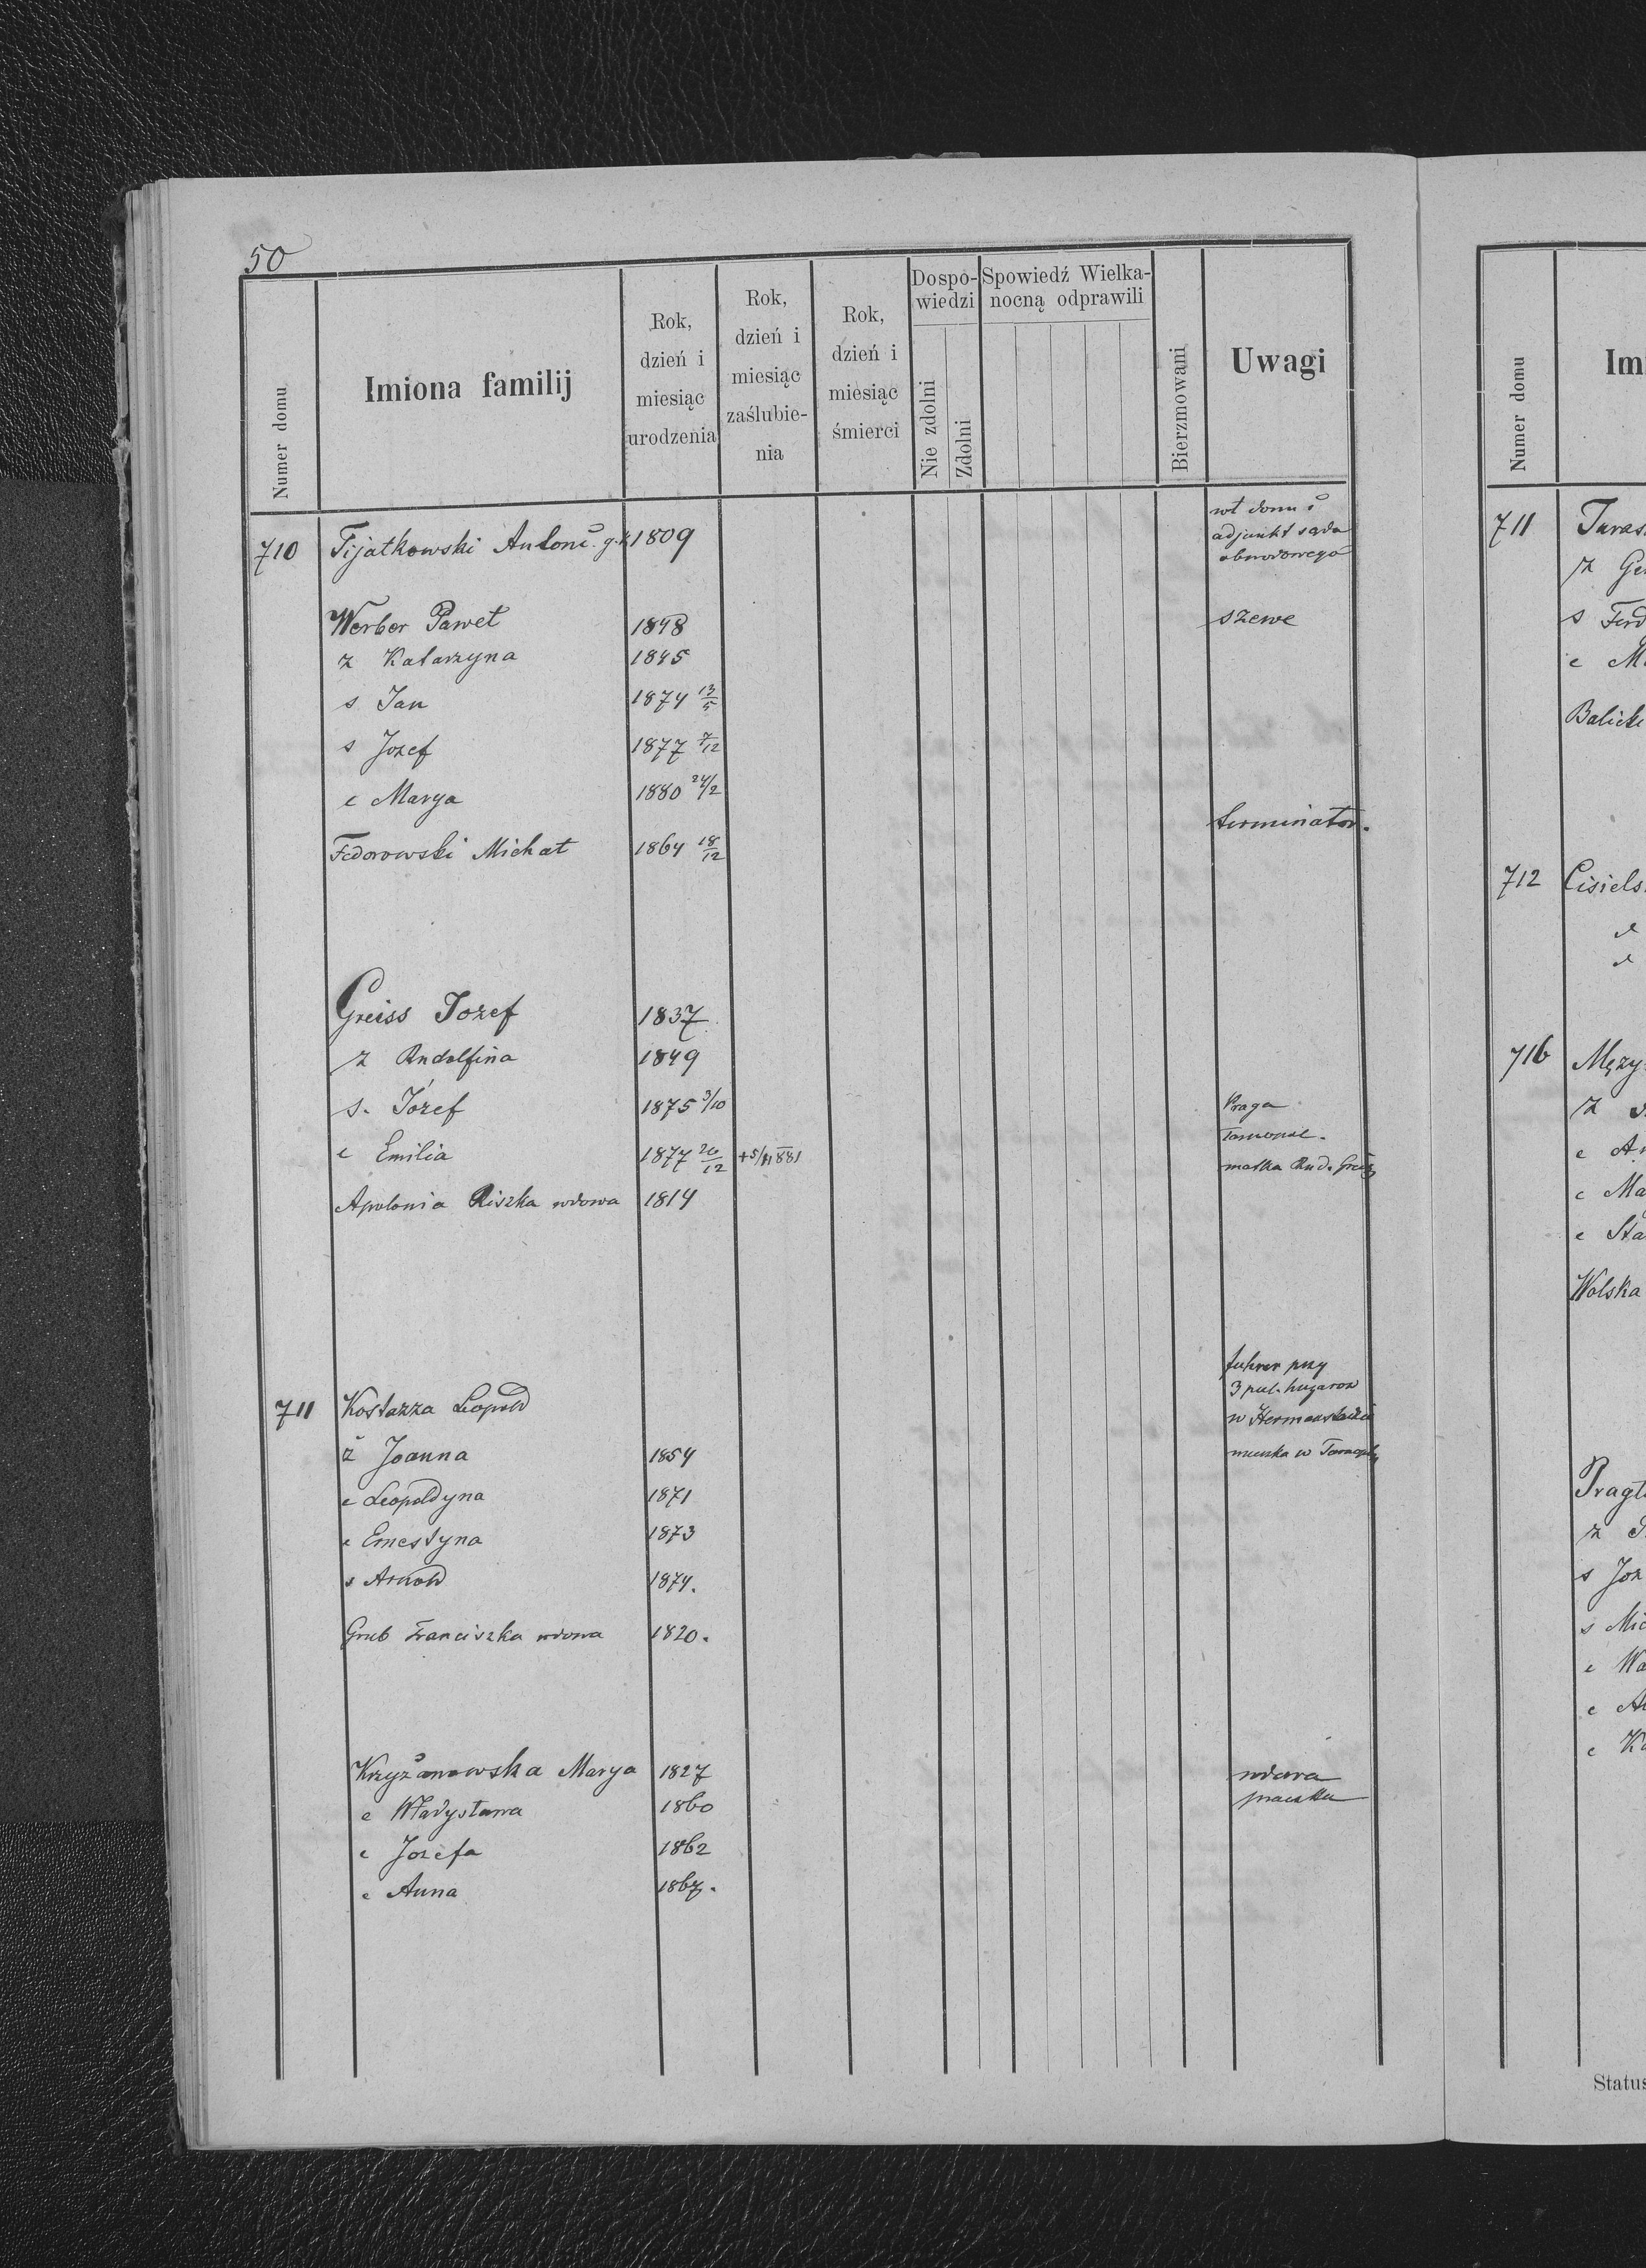 50
Numer domu
Imiona familij
Rok, dzień i miesiąc urodzenia
Rok, dzień i miesiąc zaślubie-nia
Rok, dzień i miesiąc śmierci
Dospo-wiedzi
Nie zdolni
Zdolni
Spowiedź Wielka-nocną odprawili
Bierzmowani
Uwagi
710 Fijatkowski Antoni g.k 1809 wł domu i
adjunkt sądu
obwodowego
Werber Paweł 1848 szewc
ż Katarzyna 1845
s Jan 1874 13/5
s Jozef 1877 7/12
c Marya 1880 24/2
terminator.
Fedorowski Michał 1864 18/12
Greiss Jozef 1837
ż Rudolfina 1849
s. Józef 1875 3/10 Praga
c Emilia 1877 20/12 Tarnopol.
matka Rud. Greiss
Apolonia Riszka wdowa 1814
furer przy
3 puł. huzarow
711 Kostazza Leopold w Hermanstadzie
ż Joanna 1854 w Tarnopolu
c Leopoldyna 1871
c Ernestyna 1873
s Arnold 1874.
Grub Franciszka wdowa 1820.
Krzyżanowska Marya 1827 wdowa
c Władysława 1860 praczka
c Jozefa 1862
c Anna 1867.
Numer domu
Im
711 Taras
ż Ge
s Ferd
c Ma
Balick
712 Cisiels
716 Męży
ż
c An
c Ma
c Sta
Wolska
Pragł
ż
s Joz
s Mic
c Wa
c An
c Ka
Status